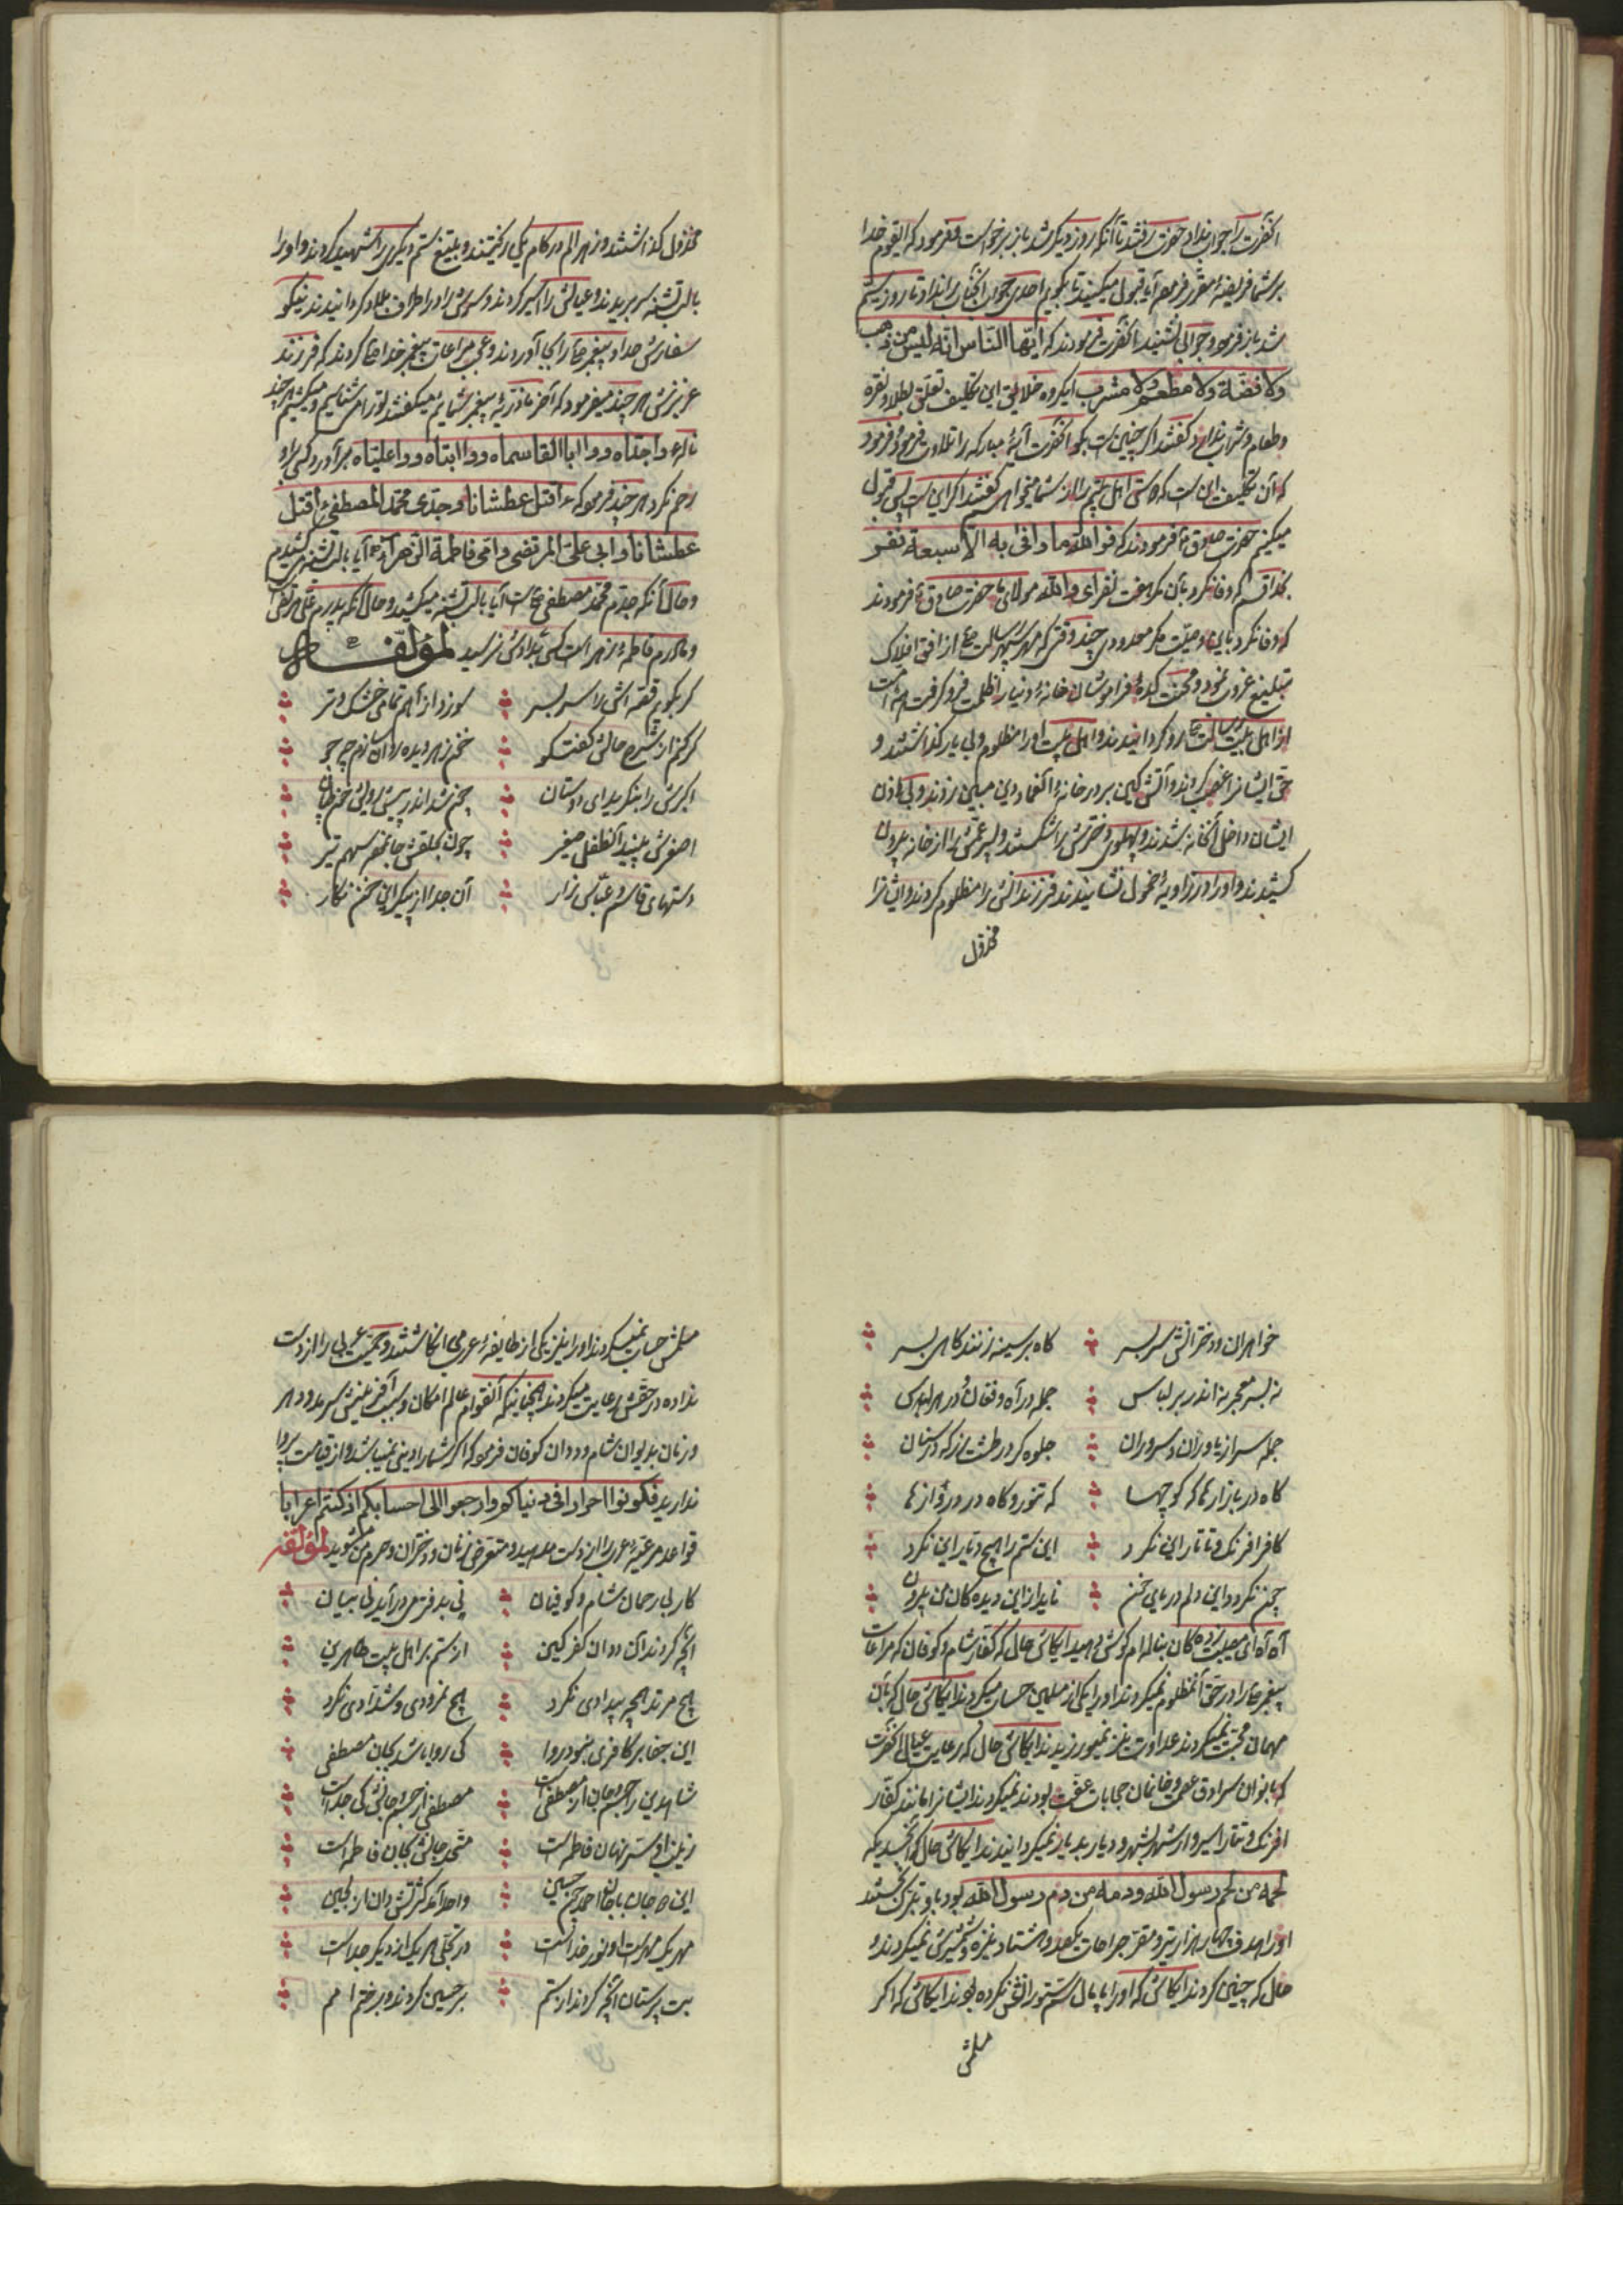 آنحضرت را جواب نداد حضرت رفتند تا آنکه روز دیگر شد باز برخواست و فرمود که ایقوم خدا
بر شما فریضه مقرر فرموده آیا قبول میکنید تا بگویم احدی جواب آنجناب را نداد تا روز سیم
شد باز فرمود و جوابی نشنید آنحضرت فرمودند که ایّها النّاس انّه لیس من ذهب
ولا فضّة ولا مطعم ولا مشرب ایگروه خلایق این تکلیف تعلق بطلا و نقره
و طعام و شراب ندارد گفتند اگر چنین است بگو آنحضرت آیهٔ مبارکه را تلاوت فرموده فرمود
که آن تکلیف این است که دوستی اهل بیتم را از شما میخواهم گفتند اگر این است پس قبول
میکنیم حضرت صادق ع فرمودند که فوالله ما وافی به الا سبعة نفر
بخدا قسم که وفا نکرد بآن مگر هفت نفر ای والله مولای ما حضرت صادق ع فرمودند
که وفا نکرد باین وصیّت مگر معدودی چند وقتی که مهر سپهر رسالت ص از افق افلاک
تبلیغ غروب نمود و محنت کدهٔ فراموشان خانهٔ دنیا را ظلمت فرو گرفت همهٔ امت
از اهل بیت رسالت رو گردانیدند و اهل بیت او را مظلوم و بی یار گذاشتند و
حق ایشانرا غصب کردند و آتش کین بر در خانهٔ آنعماد دین مبین زدند و بی اذن
ایشان داخل آنخانه شدند و پهلوی دخترش را شکستند و پسر عمّش را از خانه بیرون
کشیدند و او را در زاویهٔ خمول نشانیدند فرزندانش را مظلوم کردند و ایشانرا
مخذول
مخذول گذاشتند و زهر الم در کام یکی ریختند و بتیغ ستم دیگری را شهید کردند و او را
با لب تشنه سر بریدند و عیالش را اسیر کردند و سرش را در اطراف بلاد گردانیدند نیکو
سفارش خدا و پیغمبر خدا را بجا آوردند و عجب مراعات پیغمبر خدا ص را کردند که فرزند
عزیزش هر چند میفرمود که آخر ما ذرّیهٔ پیغمبر شمائیم میگفتند تو را میشناسیم و میکشیم هر چند
نالهٔ واجدّاه و وا ابا القاسماه و وا ابتاه و وا علیّاه برآورد کسی بر او
رحم نکرد هر چند فرمود که ءاقتل عطشانا و جدّی محمّد المصطفی ءاقتل
عطشانا و ابی علیّ المرتضی و امّی فاطمة الزّهراء آیا با لب تشنه میکشیدم
و حال آنکه جدّم محمّد مصطفی ص است آیا با لب تشنه میکشید و حال آنکه پدرم علی مرتضی
و مادرم فاطمهٔ زهرا است کسی بدادش نرسید لمؤلّفه
گر بگویم قصّه اش را سر بسر
سوزد از آهم تمامی خشک و تر
گر کنم از شرح حالش گفتگو
خون ز هر دیده روان سازم چو جو
اکبرش را بنگرید ای دوستان
چون شد اندر پیش رویش خون طپان
اصغرش بینید آنطفل صغیر
چون بحلقش جا نمود سهم تیر
دستهای قاسم و عبّاس زار
آن جدا از پیکر این خون نگار
خواهران و دخترانش سر بسر
گاه بر سینه زنند گاهی بسر
نه بسر معجر نه اندر بر لباس
جمله در آه و فغان و در هراس
جمله سر از یاوران و سروران
جلوه گر در طشت زر گه در سنان
گاه در بازارها گه کوچها
گه تنور و گاه در دروازها
کافر افرنگ و تاتار این نکرد
این ستم را هیچ دیّار این نکرد
چون نگردد این دلم دریای خون
ناید از این دیده گان من برون
آه آه ای مصیبت زده گان بناله ام گوش دهید ایکاش حال که کفّار شام و کوفان که مراعات
پیغمبر خدا را در حق آنمظلوم نمیکردند او را یکی از مسلمین حساب میکردند ایکاش حال که بآن
مهمان محبت نمیکردند عداوت نیز نمیورزیدند ایکاش حال که رعایت عیال آنحضرت
که بانوان سرادق عصمت و خاتمان حجابات عفّت بودند نمیکردند ایشانرا مانند کفّار
افرنگ و تتار اسیروار شهر بشهر و دیار بدیار نمیگردانیدند ایکاش حال که آنجسدیکه
لحمه من لحم رسول الله و دمه من دم رسول الله بود باو تبرّک نجستند
او را هدف چهار هزار تیر و مقرّ جراحات یکصد و هشتاد نیزه و شمشیرش نمیکردند و
حال که چنین کردند ایکاش که او را پامال ستم ستوران نکرده بودند ایکاش که اگر
مسلمش
مسلمش حساب نمیکردند او را نیز یکی از طایفهٔ عرب می انگاشتند و حمیّت عربی را از دست
نداده در حقش رعایت میکردند همچنانیکه آنقوام عالم امکان و سبب آفرینش سرمد و دهر
و زمان بدیوان شام و ددان کوفان فرمود که اگر شما را دینی نمیباشد و از قیامت پروا
ندارید فکونوا احرارا فی دنیاکم و ارجعوا الی احسابکم اذ کنتم اعرابا
قواعد مرعیّهٔ عرب را از دست مدهید و متعرض زنان و دختران و حرم من مشوید لمؤلّفه
کار بی رحمان شام و کوفیان
نی بدفتر در آید نی بیان
آنچه کردند آن ددان کفر کین
از ستم بر اهل بیت طاهرین
هیچ مرتد هیچ بیدادی نکرد
هیچ نمرودی و شدّادی نکرد
این جفا بر کافری نبود روا
کی روا باشد بجان مصطفی
شاه دین را جسم و جان از مصطفی است
مصطفی از جسم و جانش کی جداست
زینت او ستر نهان فاطمه است
متّحد جانش بجان فاطمه است
این دو جان با جان احمد چون حسین
واحد آمد کثرتش دان از لجین
مهر یک مهر است او نور خداست
در تجلّی هر یک از دیگر جداست
بت پرستان آنچه کردند از ستم
بر حسین کردند و بر ختم امم